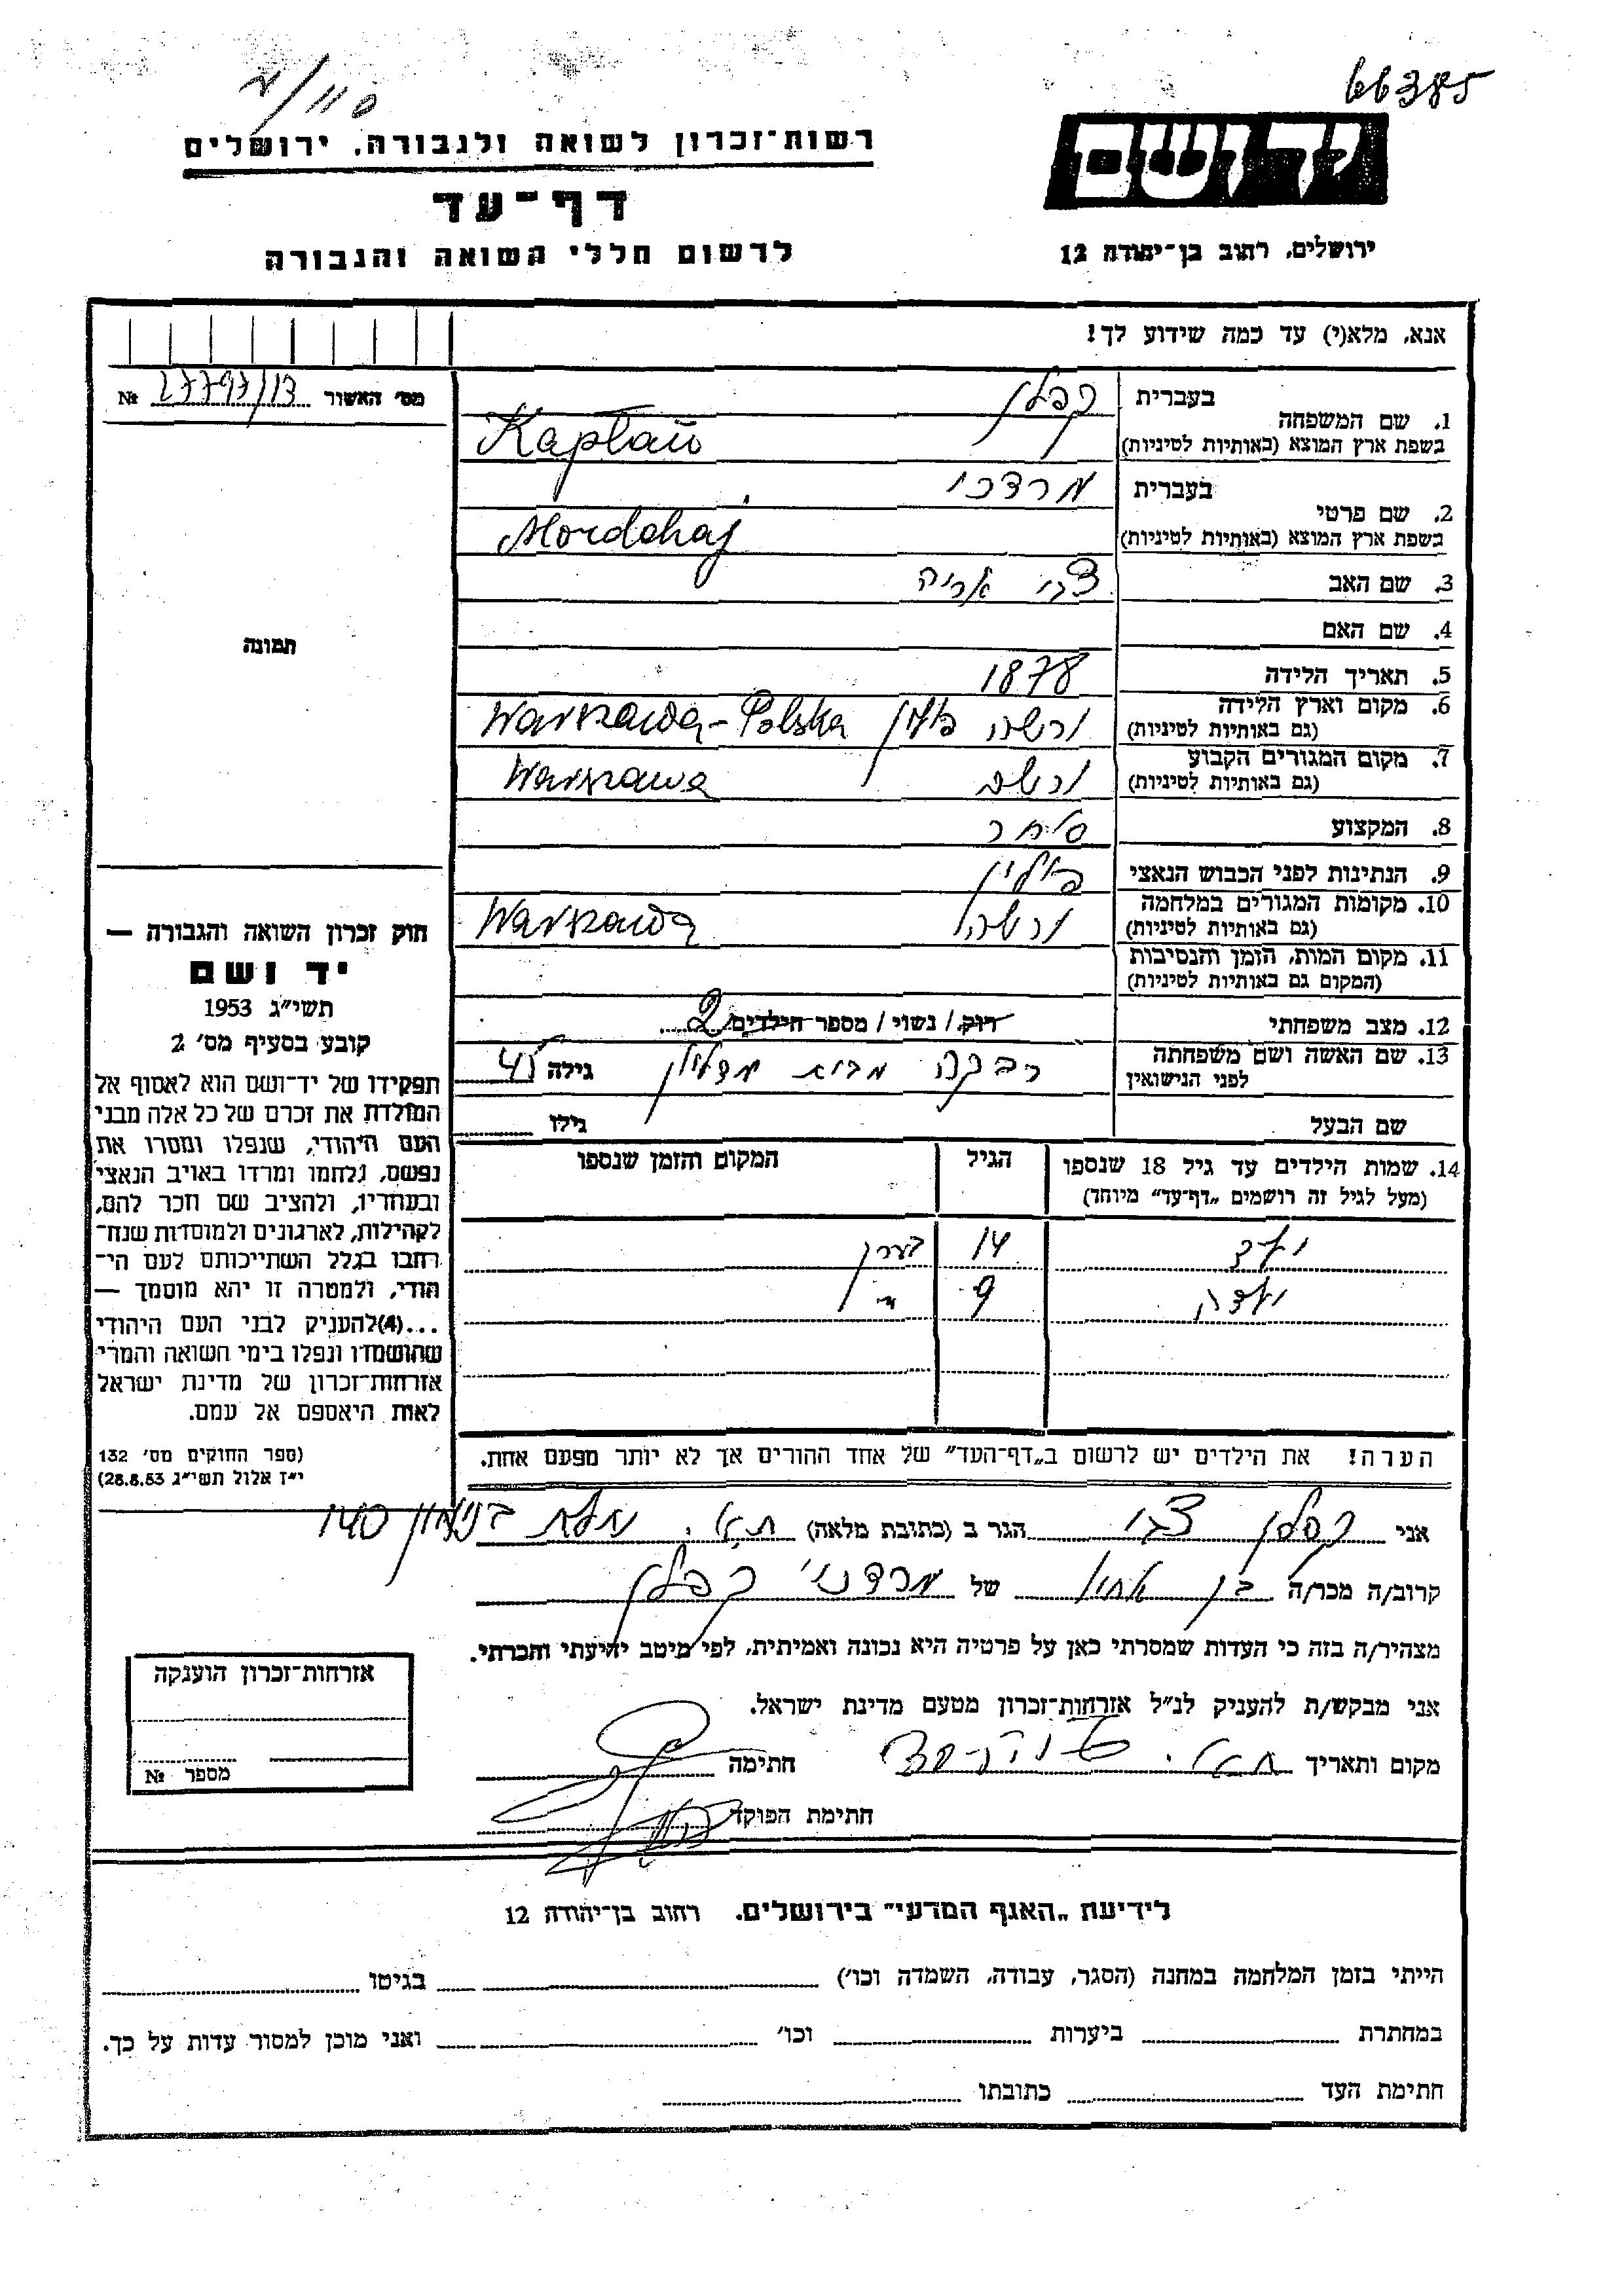 66385
יד ושם
רשות־זכרון לשואה ולגבורה, ירושלים
דף־עד
לרשום חללי השואה והגבורה
ירושלים, רחוב בן־יהודה 12
אנא, מלא(י) עד כמה שידוע לך!
מס׳ האשור № 27797/13
תמונה
1. שם המשפחה בעברית קפלן
בשפת ארץ המוצא (באותיות לטיניות) Kapłan
2. שם פרטי בעברית מרדכי
בשפת ארץ המוצא (באותיות לטיניות) Mordchaj
3. שם האב צבי אריה
4. שם האם
5. תאריך הלידה 1878
6. מקום וארץ הלידה ורשה פולין Warszawa-Polska
(גם באותיות לטיניות)
7. מקום המגורים הקבוע ורשה Warszawa
(גם באותיות לטיניות)
8. המקצוע סוחר
9. הנתינות לפני הכבוש הנאצי פולין
10. מקומות המגורים במלחמה ורשה Warszawa
(גם באותיות לטיניות)
11. מקום המות, הזמן והנסיבות
(המקום גם באותיות לטיניות)
12. מצב משפחתי רוק/ נשוי/ מספר הילדים 2
13. שם האשה ושם משפחתה רבקה מבית גילה 45
לפני הנישואין
שם הבעל גילו
14. שמות הילדים עד גיל 18 שנספו הגיל המקום והזמן שנספו
(מעל לגיל זה רושמים „דף־עד״ מיוחד)
ילד 14
ילדה 9 "
הערה! את הילדים יש לרשום ב„דף־העד״ של אחד ההורים אך לא יותר מפעם אחת.
חוק זכרון השואה והגבורה —
יד ושם
תשי״ג 1953
קובע בסעיף מס׳ 2
תפקידו של יד־ושם הוא לאסוף אל
המולדת את זכרם של כל אלה מבני
העם היהודי, שנפלו ומסרו את
נפשם, נלחמו ומרדו באויב הנאצי
ובעוזריו, ולהציב שם וזכר להם,
לקהילות, לארגונים ולמוסדות שנח־
רחבו בגלל השתייכותם לעם הי־
הודי, ולמטרה זו יהא מוסמך —
...(4)להעניק לבני העם היהודי
שהושמדו ונפלו בימי השואה והמרי
אזרחות־זכרון של מדינת ישראל
לאות היאספם אל עמם.
(ספר החוקים מס׳ 132
י״ז אלול תשי״ג 28.8.53)
אני קפלן צבי הגר ב (כתובת מלאה) ת״א. 140
קרוב/ה מכר/ה בן אחיו של מרדכי קפלן
מצהיר/ה בזה כי העדות שמסרתי כאן על פרטיה היא נכונה ואמיתית, לפי מיטב ידיעתי והכרתי.
אני מבקש/ת להעניק לנ״ל אזרחות־זכרון מטעם מדינת ישראל.
מקום ותאריך ת״א. חתימה
חתימת הפוקד
אזרחות־זכרון הוענקה
מספר №
לידיעת „האגף המדעי״ בירושלים. רחוב בן־יהודה 12
הייתי בזמן המלחמה במחנה (הסגר, עבודה, השמדה וכו׳) בגיטו
במחתרת ביערות וכו׳ ואני מוכן למסור עדות על כך.
חתימת העד כתובתו